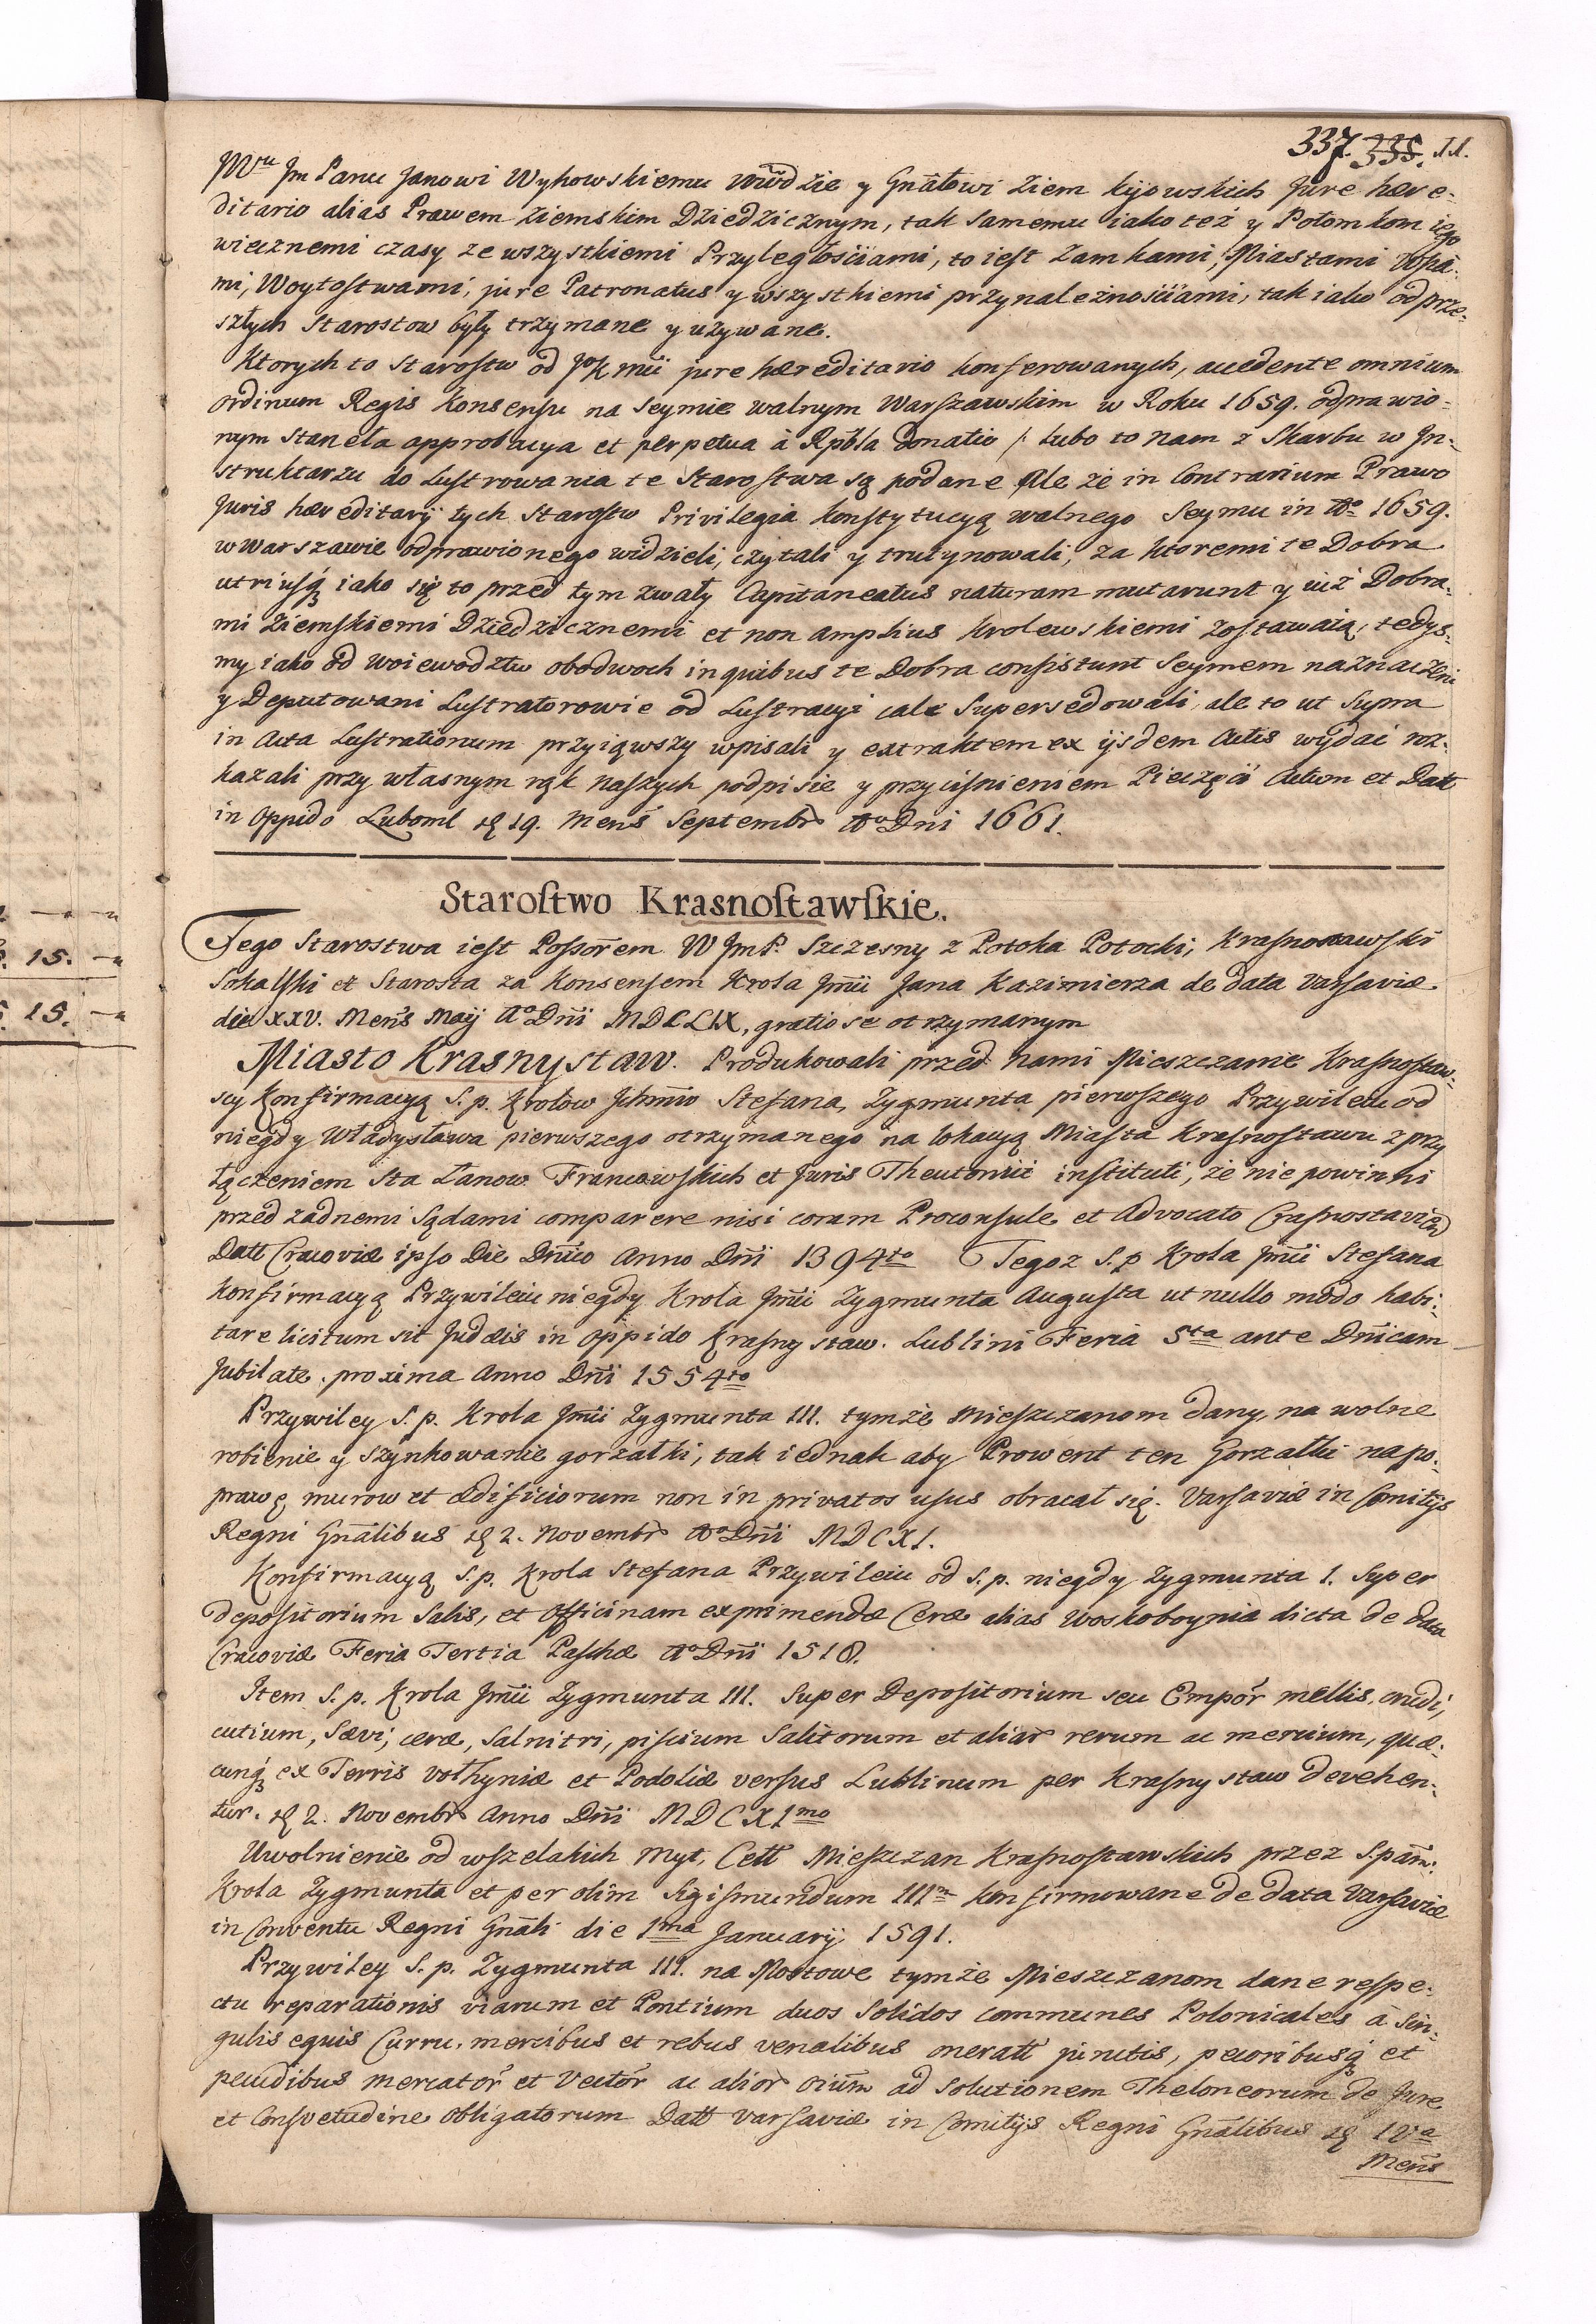 337. 335. II.
JWu Jm Panu Janowi Wyhowskiemu Wwdzie y Gnāłowi Ziem kijowskich Jure hære-
ditario alias Prawem Ziemskim Dziedzicznym, tak samemu iako też y Potomkom iego
wiecznemi czasy ze wszystkiemi Przyległościami, to iest Zamkami, Miastami Wsia-
mi, Woytostwami, jure Patronatus y wszystkiemi przynależnościami, tak iako od prze-
szłych Starostow były trzymane y używane.
Ktorych to Starostw od JoKMći jure hæreditario konferowanych, accedente omnium
ordinum Regis Konsensu na Seymie walnym Warszawskim w Roku 1659. odprawio-
nym staneła approbacya et perpetua à Rpbła Donatio /: Lubo to nam z Skarbu w In-
struktarzu do Lustrowania te Starostwa są podane Ale że in Contrarium Prawo
Juris hæreditarij tych Starostw Privilegia Konstytucyą walnego Seymu in Ao 1659.
w Warszawie odprawionego widzieli, czytali y trutynowali, za ktoremi te Dobra
utriusq3 iako się to przed tym zwały Capitaneatus naturam mutarunt y iuż Dobra-
mi Ziemskiemi Dziedzicznemi et non amplius Krolewskiemi zostawaią, tedys-
my iako od Woiewodztw obodwoch in quibus te Dobra consistunt Seymem naznaczeni
y Deputowani Lustratorowie od Lustracyi cale Supersedowali, ale to ut Supra
in Acta Lustrationum przyiąwszy wpisali y extraktem ex ijsdem Actis wydać roz-
kazali przy własnym rąk naszych podpisie y przyciśnieniem Pieczęći Actum et Datt
in Oppido Luboml d 19. Mens̄ Septembr̄ Ao Dni 1661.
Starostwo Krasnostawskie.
Tego Starostwa iest Possor̄em W JmP. Szczesny z Potoka Potocki, Krasnostawski
Sokalski et Starosta za Konsensem Krola Jmći Jana Kazimierza de data Varsaviæ
die XXV. Mens̄ Maij Ao Dn̄i MDCLIX, gratiose otrzymanym
Miasto Krasnystaw. Produkowali przed nami Mieszczanie Krasnostaw-
scy Konfirmacyą S. p. Krolow Jchmćiow Stefana, Zygmunta pierwszego Przywileiu od
niegdy Władysława pierwszego otrzymanego na lokacyą Miasta Krasnostawu z przy
łączeniem Sta Łanow Francowskich et Juris Theutonici instituti, że nie powinni
przed żadnemi Sądami comparere nisi coram Proconsule et Advocato Crasnostavien
Datt Cracoviæ ipso Die Dn̄ico Anno Dn̄i 1394to Tegoz S. p Krola Jmći Stefana
Konfirmacyą Przywileiu niegdy Krola Jmći Zygmunta Augusta ut nullo modo habi-
tare licitum sit Judæis in Oppido Krasnystaw. Lublini Feria 5ta ante Dn̄icam
Jubilate. proxima Anno Dn̄i 1554to
Przywiley S. p. Krola Jmći Zygmunta III. tymże Mieszczanom dany, na wolne
robienie y szynkowanie gorzałki, tak iednak aby Prowent ten Gorzałki na po-
prawę murow et ædificiorum non in privatos usus obracał się. Varsaviæ in Comitijs
Regni Gnālibus d 2. Novembr̄ Ao Dn̄i MDCXI.
Konfirmacyą S. p. Krola Stefana Przywileiu od S. p. niegdy Zygmunta I. Super
Depositorium Salis, et Officinam exprimendæ Ceræ alias Woskoboynia dicta de data
Cracoviæ Feria Tertia Paschæ Ao Dn̄i 1518.
Item S. p. Krola Jmći Zygmunta III. Super Depositorium seu Empor̄ mellis, crudi,
cutium, Sævi, ceræ, Salnitri, piscium Salitorum et aliar̄ rerum ac mercium, quæ-
cunq3 ex Terris Volhyniæ et Podoliæ versus Lublinum per Krasnystaw devehen-
tur. d 2. Novembr̄ Anno Dn̄i MDCXImo
Uwolnienie od wszelakich Myt, Cełł Mieszczan Krasnostawskich przez S. pām:
Krola Zygmunta et per olim Sigismundum IIIm Konfirmowane de data Varsaviæ
in Conventu Regni Gnāli die 1ma Januarij 1591.
Przywiley S. p. Zygmunta III. na Mostowe tymże Mieszczanom dane respe-
ctu reparationis viarum et Pontium duos Solidos communes Polonicales à Sin-
gulis equis Curru, mercibus et rebus venalibus oneratt junctis, pecoribusq3 et
pecudibus mercator̄ et Vector̄ ac alior̄ oium̄ ad Solutionem Theloneorum de Jure
et Consvetudine obligatorum Datt Varsaviæ in Comitijs Regni Gnālibus d
Mens̄